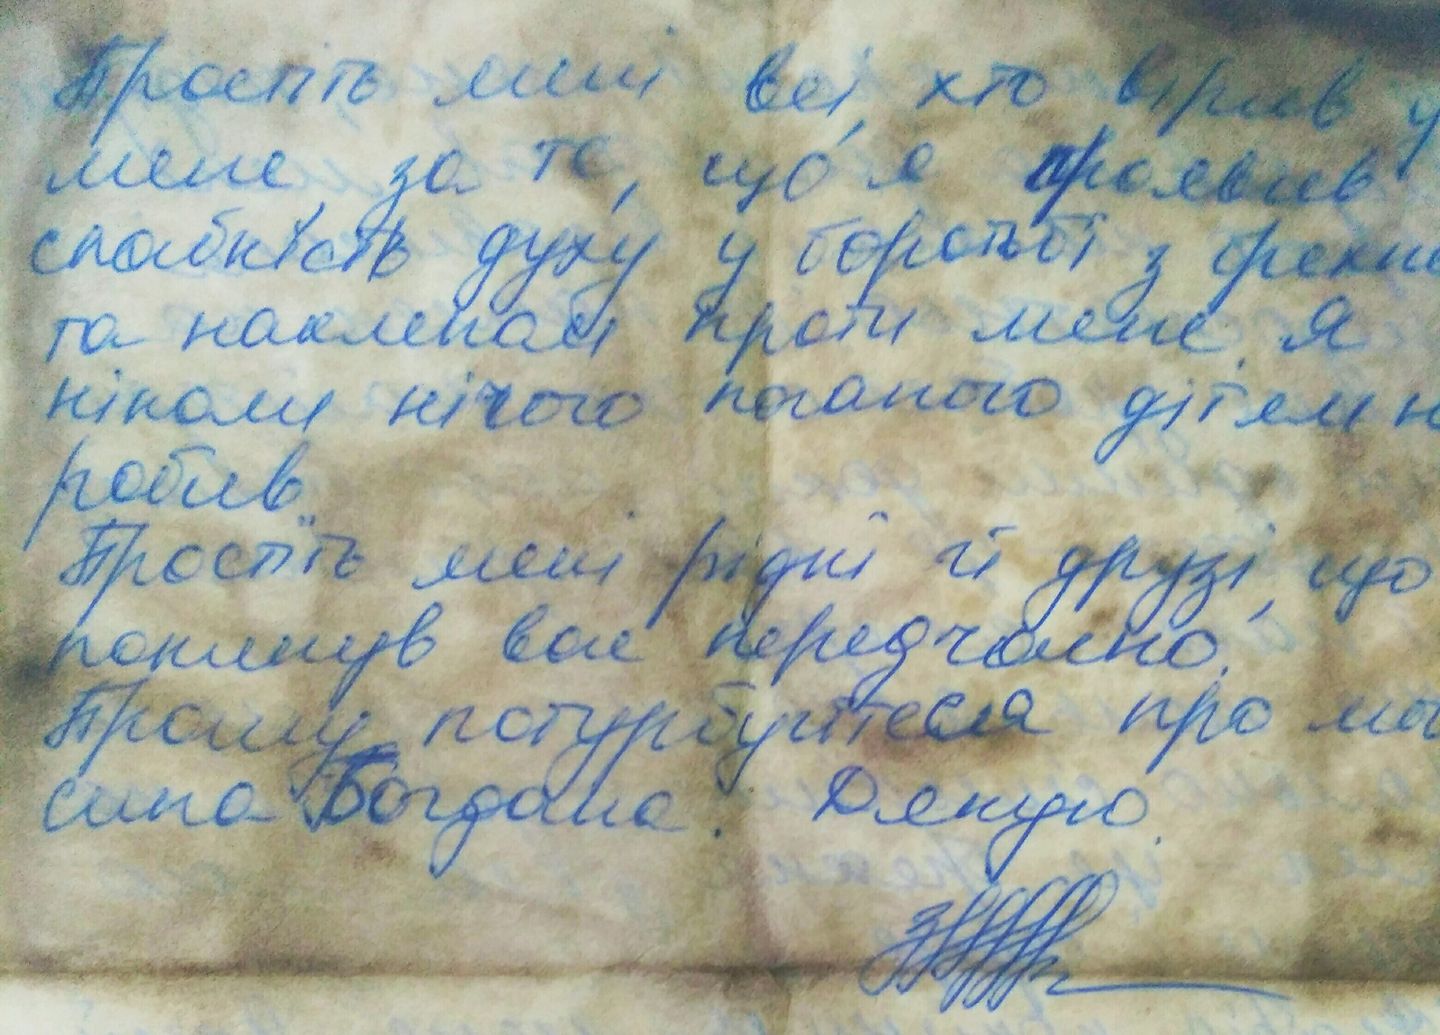 Простіть мені всі, хто вірив у
мене, за те, що я проявив
слабкість духу у боротьбі з брехнею
та наклепом проти мене. Я
ніколи нічого поганого дітям не
робив.
Простіть мені рідні й друзі, що
покинув вас передчасно.
Прошу потурбуйтеся про мого
сина Богдана. Дякую.